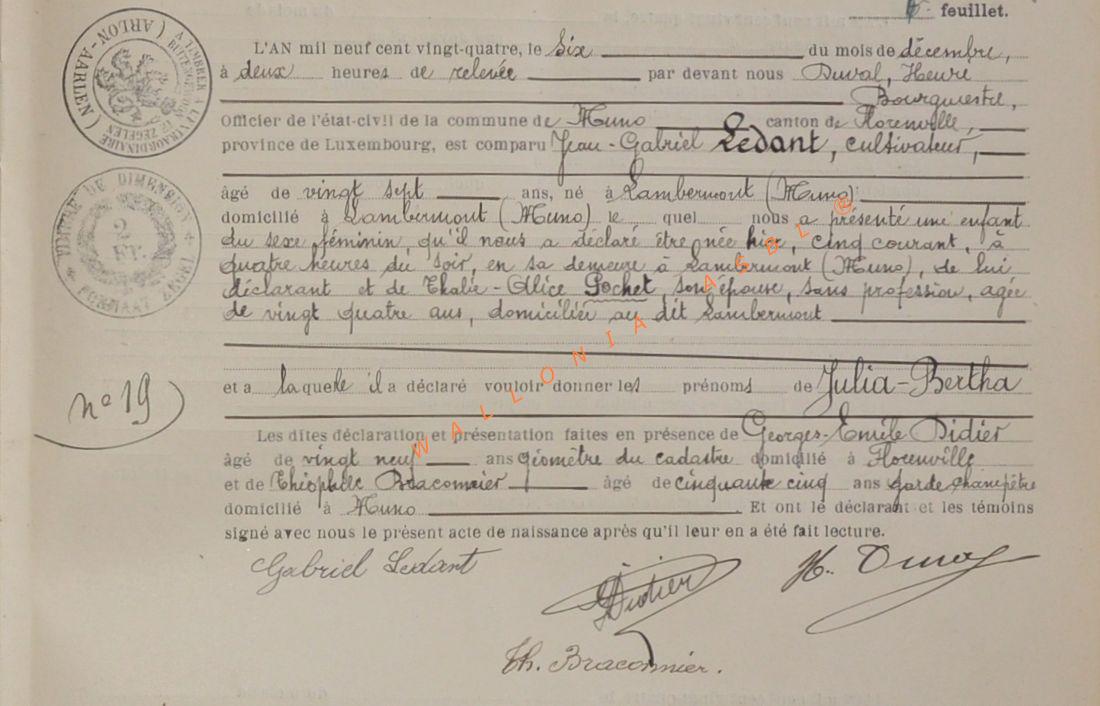 feuillet.
L'AN mil neuf cent vingt-quatre, le six du mois de décembre,
à deux heures de relevée par devant nous Duval, Henri
Bourgmestre,
Officier de l'état-civil de la commune de Muno canton de Florenville,
province de Luxembourg, est comparu Jean-Gabriel Ledant, cultivateur,
âgé de vingt sept ans, né à Lambermont (Muno)
domicilié à Lambermont (Muno) le quel nous a présenté une enfant
du sexe féminin, qu'il nous a déclaré être née hier, cinq courant, à
quatre heures du soir, en sa demeure à Lambermont (Muno), de lui
déclarant et de Thalie-Alice Gochet, son épouse, sans profession, agée
de vingt quatre ans, domiciliée au dit Lambermont
et a laquelle il a déclaré vouloir donner les prénoms de Julia-Bertha
n° 19
Les dites déclaration et présentation faites en présence de Georges-Emile Didier
âgé de vingt neuf ans géomètre du cadastre domicilié à Florenville
et de Théophile Braconnier âgé de cinquante cinq ans garde champêtre
domicilié à Muno Et ont le déclarant et les témoins
signé avec nous le présent acte de naissance après qu'il leur en a été fait lecture.
Gabriel Ledant
Didier
H. Duval
Th. Braconnier.
WALLONIA ASBL ®
TIMBRE DE DIMENSION
2
FR.
(ARLON-AARLEN)